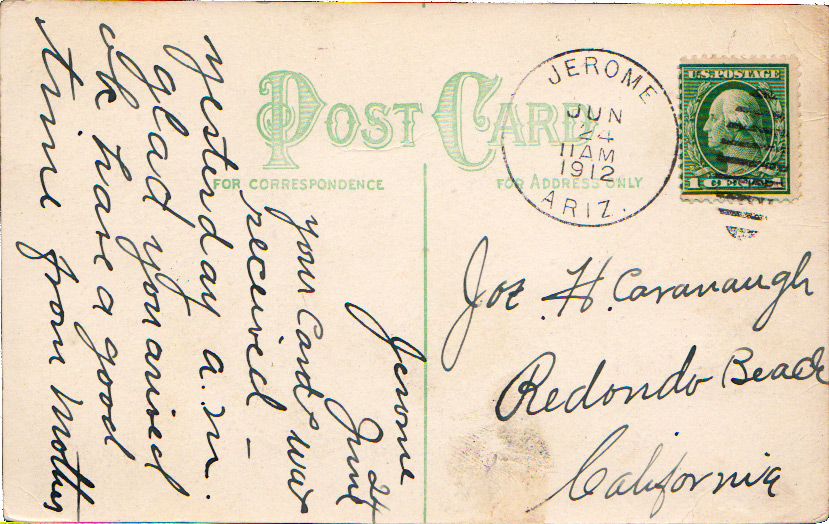 POST CARD
FOR CORRESPONDENCE
FOR ADDRESS ONLY
JEROME
JUN
24
11 AM
1912
ARIZ.
U.S. POSTAGE
Jerome
June 24
your Card was
received –
yesterday a.m.
glad you arived
ok have a good
time from Mother
Joe H. Cavanaugh
Redondo Beach
California